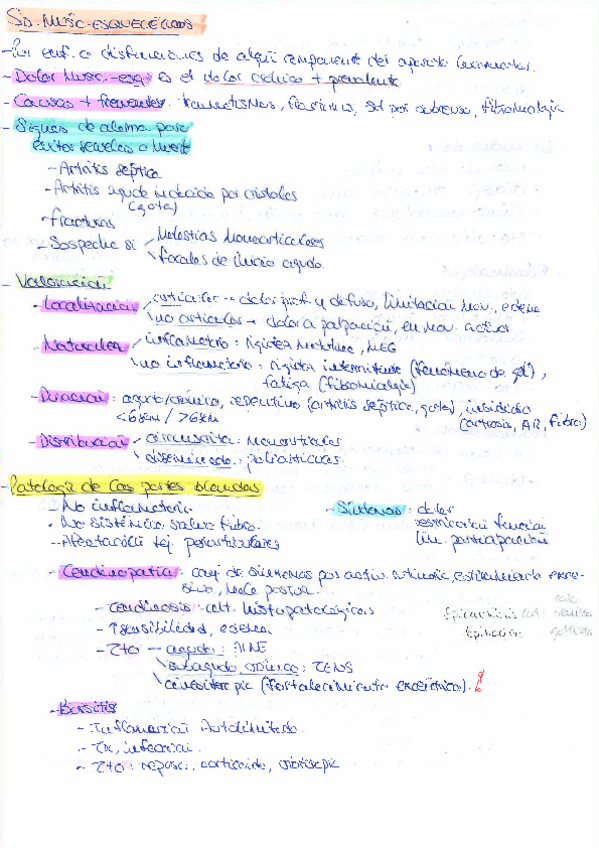 SD. MUSC-ESQUELÉTICOS
- Por enf. o disfunciones de algún componente del aparato locomotor.
- Dolor Musc.-esq es el dolor crónico + prevalente
- Causas + frecuentes: traumatismos, , sd por sobreuso, fibromialgia
- Signos de alarma para
evitar secuelas o muerte
- Artritis séptica
- Artritis aguda inducida por cristales
(gota)
- Fracturas
- Sospecha si Molestias monoarticulares
focales de inicio agudo.
- Valoración:
- Localización articular → dolor prof. y difuso, limitación mov., edema
no articular → dolor a palpación, en mov. activos
- Naturaleza inflamatorio: rigidez matutina, MEG
no inflamatorio: rigidez intermitente (fenómeno de gel),
fatiga (fibromialgia)
- Duración: agudo/crónico, repentino (artritis séptica, gota), insidioso
<6sem / >6sem (artrosis, AR, fibro)
- Distribución circunscrita: monoarticular
diseminada: poliarticular
- Patología de las partes blandas
- No inflamatoria. - Síntomas: dolor
- No sistémica salvo fibro. restricción función
- Afectación tej. periarticulares lim. participación
- Tendinopatía: conj de síntomas por activ. , estiramiento exce-
sivo, mala postura.
- Tendinosis: alt. histopatológicas
- ↑sensibilidad, edema
- Tto - agudo: AINE
subagudo, crónico: TENS
cinesiterapia (fortalecimiento excéntrico).
codo
Epicondilitis lat: tenista
Epitróclea: golfista
- Bursitis
- Inflamación Autolimitada
- Tx, infección.
- Tto: reposo, corticoide, crioterapia